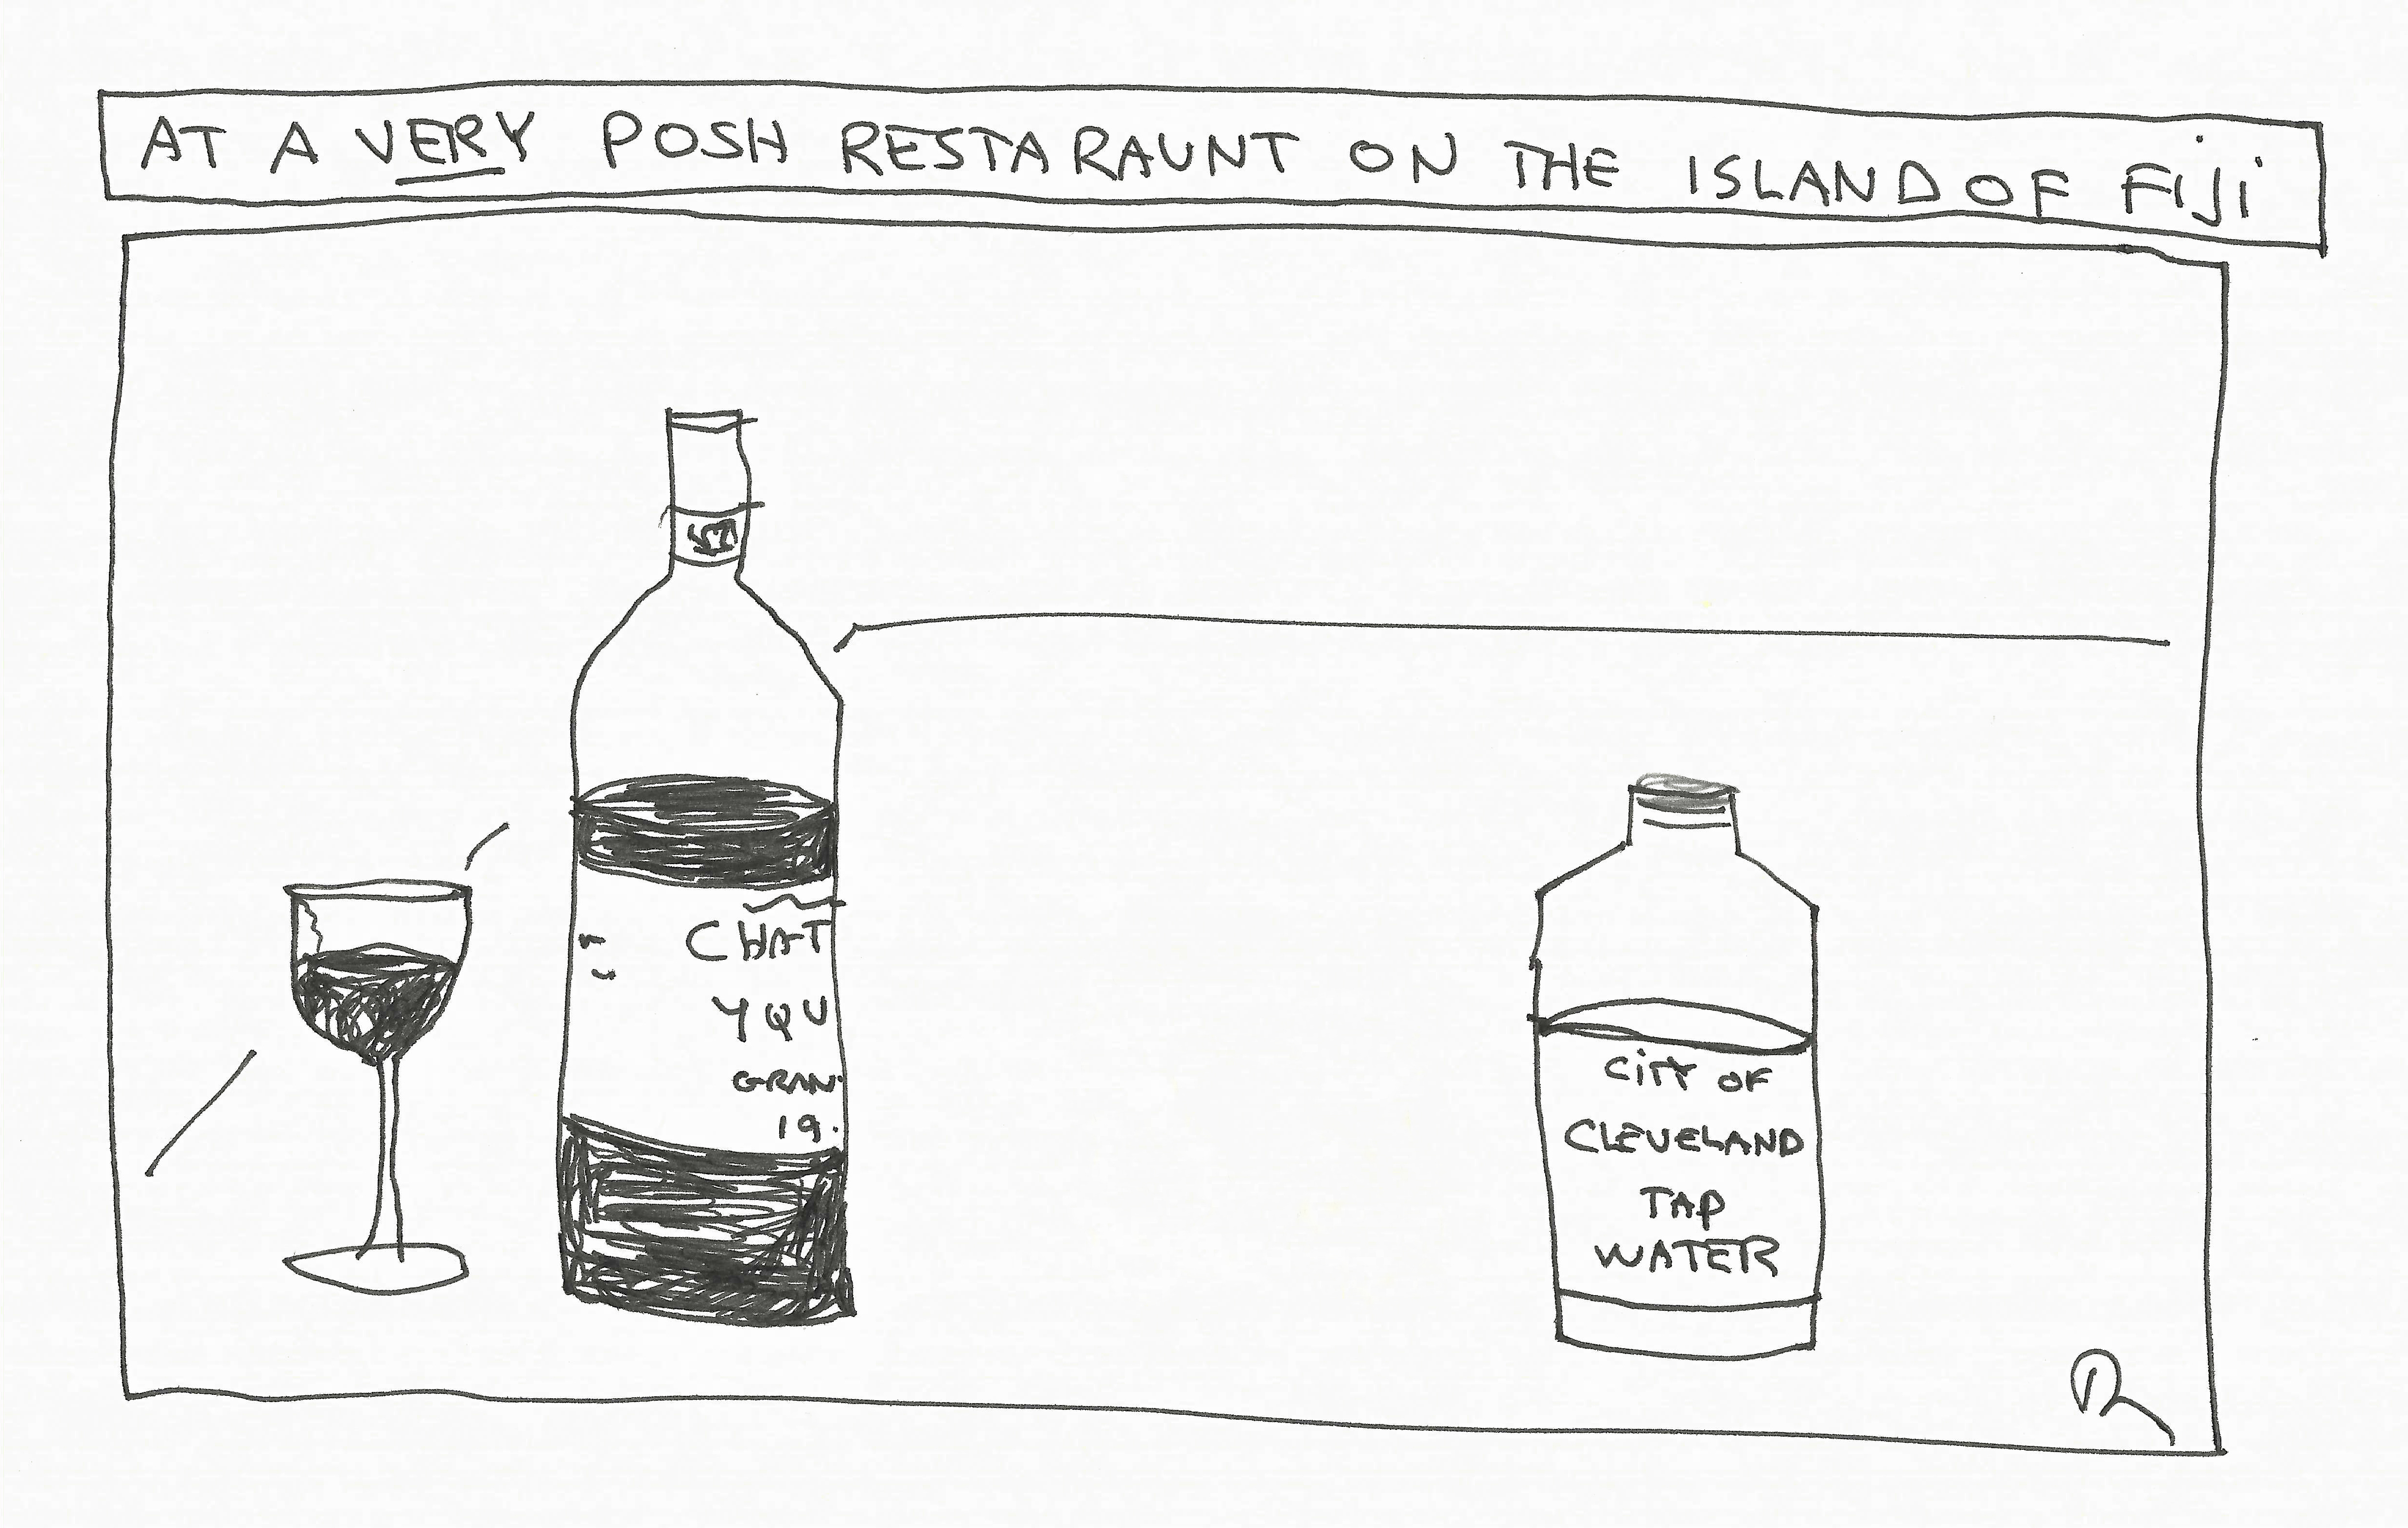 AT A VERY POSH RESTARAUNT ON THE ISLAND OF FIJI
CHAT
YQU
GRAN.
19.
CITY OF
CLEVELAND
TAP
WATER